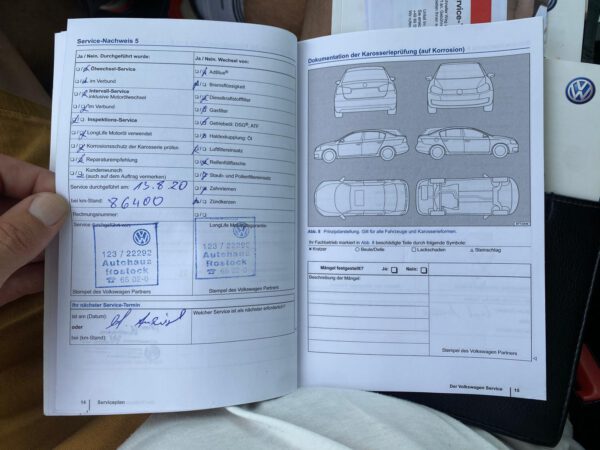 Service-Nachweis 5
Ja / Nein. Durchgeführt wurde:
Ölwechsel-Service
im Verbund
Intervall-Service
inklusive Motorölwechsel
im Verbund
Inspektions-Service
LongLife Motoröl verwendet
Korrosionsschutz der Karosserie prüfen
Reparaturempfehlung
Kundenwunsch
(auch auf dem Auftrag vermerken)
Service durchgeführt am: 13.8.20
bei km-Stand: 86400
Rechnungsnummer:
Service durchgeführt von:
123 / 22292
Autohaus
Rostock
☎ 65 02-0
Stempel des Volkswagen Partners
Ja / Nein. Wechsel von:
AdBlue®
Bremsflüssigkeit
Dieselkraftstofffilter
Gasfilter
Getriebeöl: DSG®, ATF
Haldexkupplung: Öl
Luftfiltereinsatz
Reifenfülflasche
Staub- und Pollenfiltereinsatz
Zahnriemen
Zündkerzen
LongLife Mobilitätsgarantie:
123 / 22292
Autohaus
Rostock
☎ 65 02-0
Stempel des Volkswagen Partners
Ihr nächster Service-Termin
ist am (Datum):
oder
bei (km-Stand):
Welcher Service ist als nächster erforderlich?
14 Serviceplan
Dokumentation der Karosserieprüfung (auf Korrosion)
Abb. 8 Prinzipdarstellung. Gilt für alle Fahrzeuge und Karosserieformen.
Ihr Fachbetrieb markiert in Abb. 8 beschädigte Teile durch folgende Symbole:
× Kratzer ○ Beule/Delle □ Lackschaden △ Steinschlag
Mängel festgestellt? Ja □ Nein □
Beschreibung der Mängel:
Stempel des Volkswagen Partners
Der Volkswagen Service 15